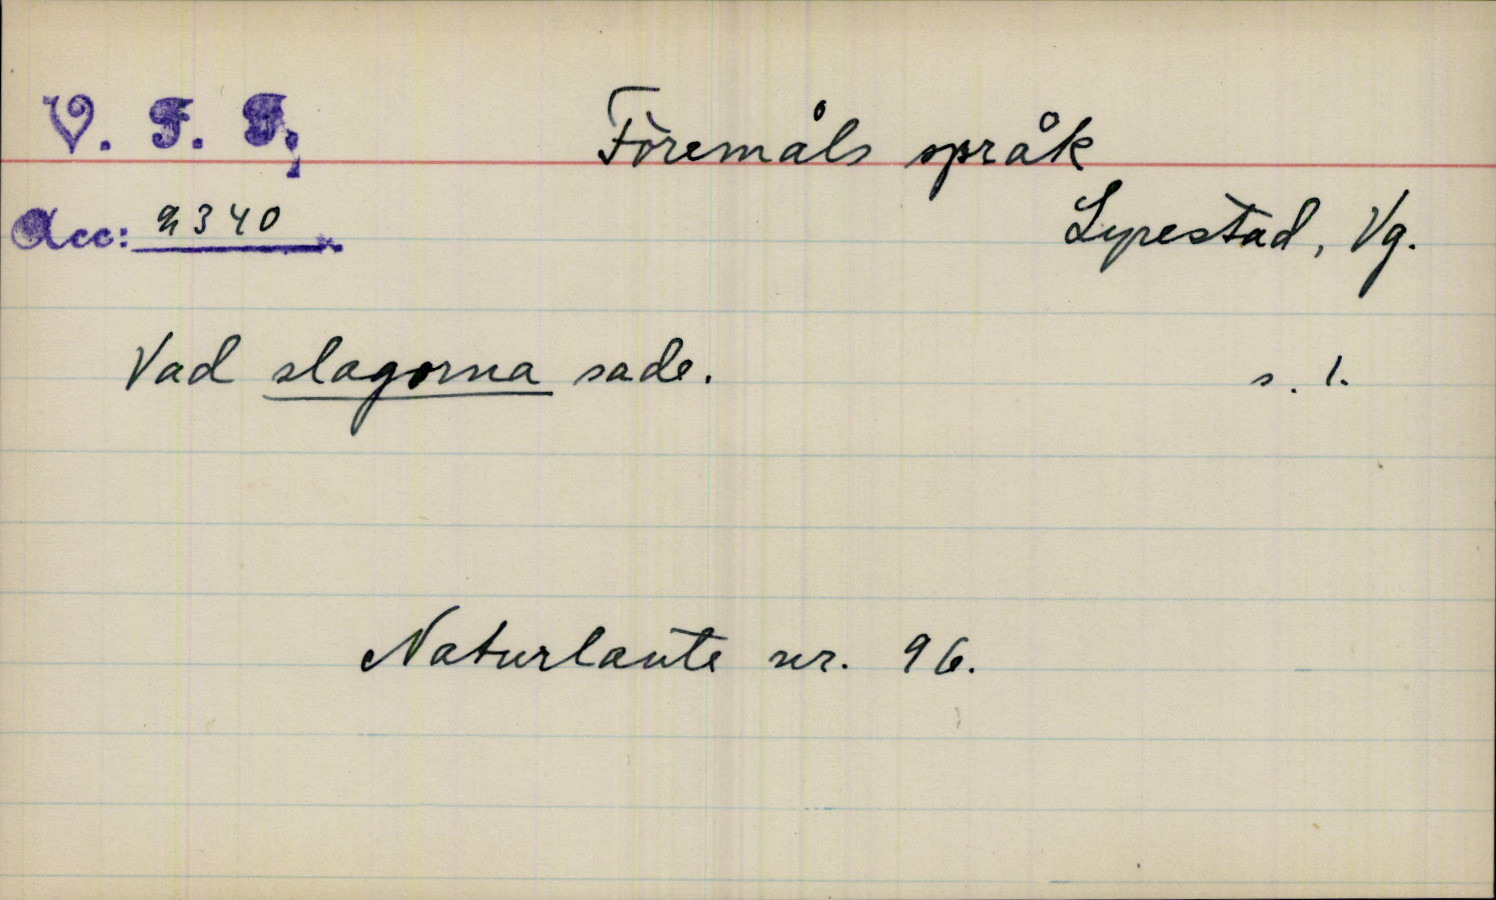 V. F. F.
Föremåls språk
Acc: 2340
Lyrestad, Vg.
Vad slagorna sade. s. 1.
Naturlaute nr. 96.